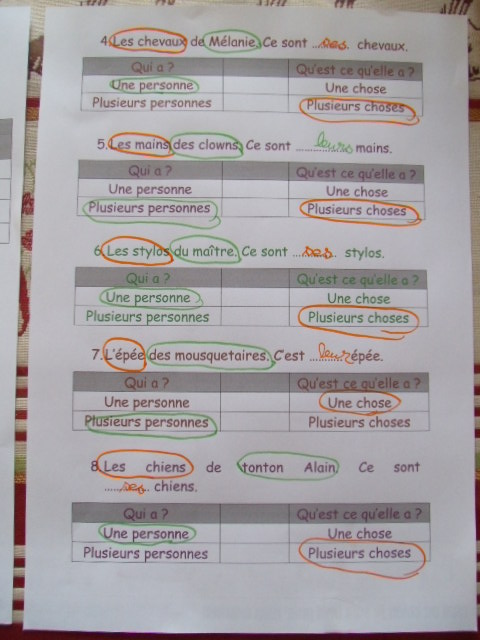 4. Les chevaux de Mélanie. Ce sont ...ses... chevaux.
Qui a ? Qu'est ce qu'elle a ?
Une personne Une chose
Plusieurs personnes Plusieurs choses
5. Les mains des clowns. Ce sont ...leurs mains.
Qui a ? Qu'est ce qu'elle a ?
Une personne Une chose
Plusieurs personnes Plusieurs choses
6. Les stylos du maître. Ce sont ...ses... stylos.
Qui a ? Qu'est ce qu'elle a ?
Une personne Une chose
Plusieurs personnes Plusieurs choses
7. L'épée des mousquetaires. C'est ...leur épée.
Qui a ? Qu'est ce qu'elle a ?
Une personne Une chose
Plusieurs personnes Plusieurs choses
8. Les chiens de tonton Alain. Ce sont
...ses... chiens.
Qui a ? Qu'est ce qu'elle a ?
Une personne Une chose
Plusieurs personnes Plusieurs choses